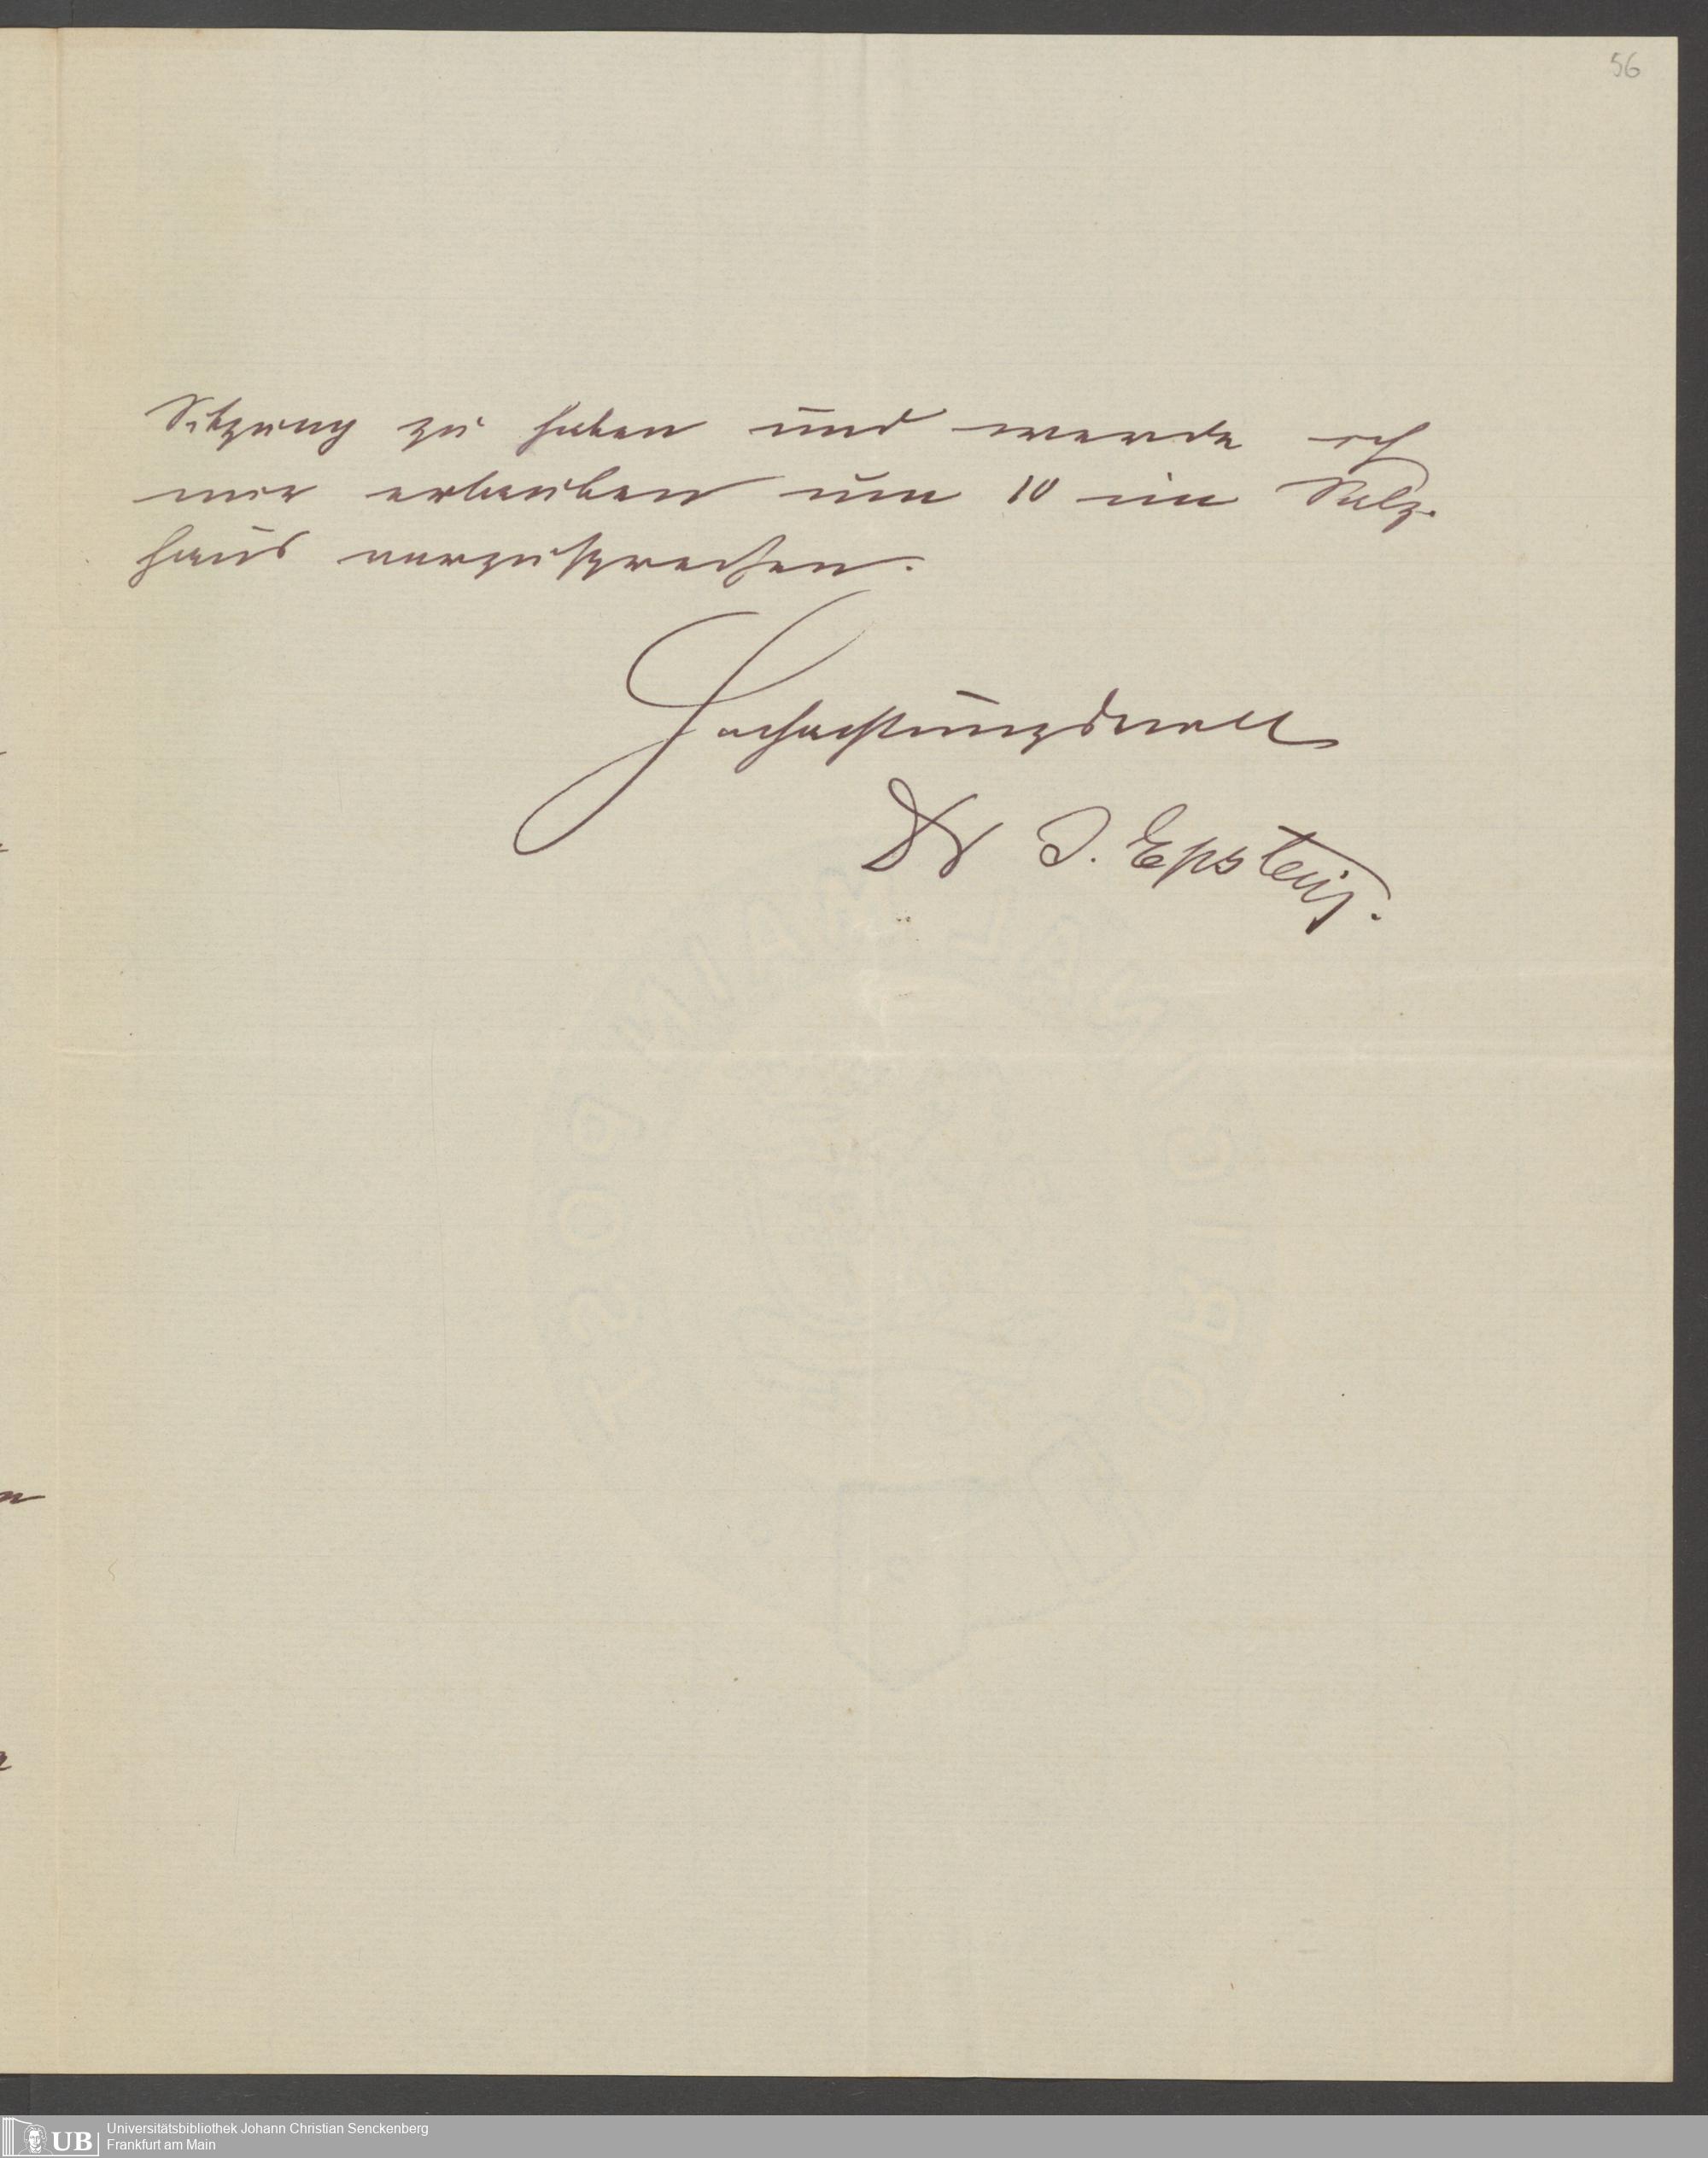 56
Sitzung zu haben und werde ich
mir erlauben um 10 im Salz-
haus vorzusprechen.
Hochachtungsvoll
Dr J. Epstein.
UB
Universitätsbibliothek Johann Christian Senckenberg
Frankfurt am Main